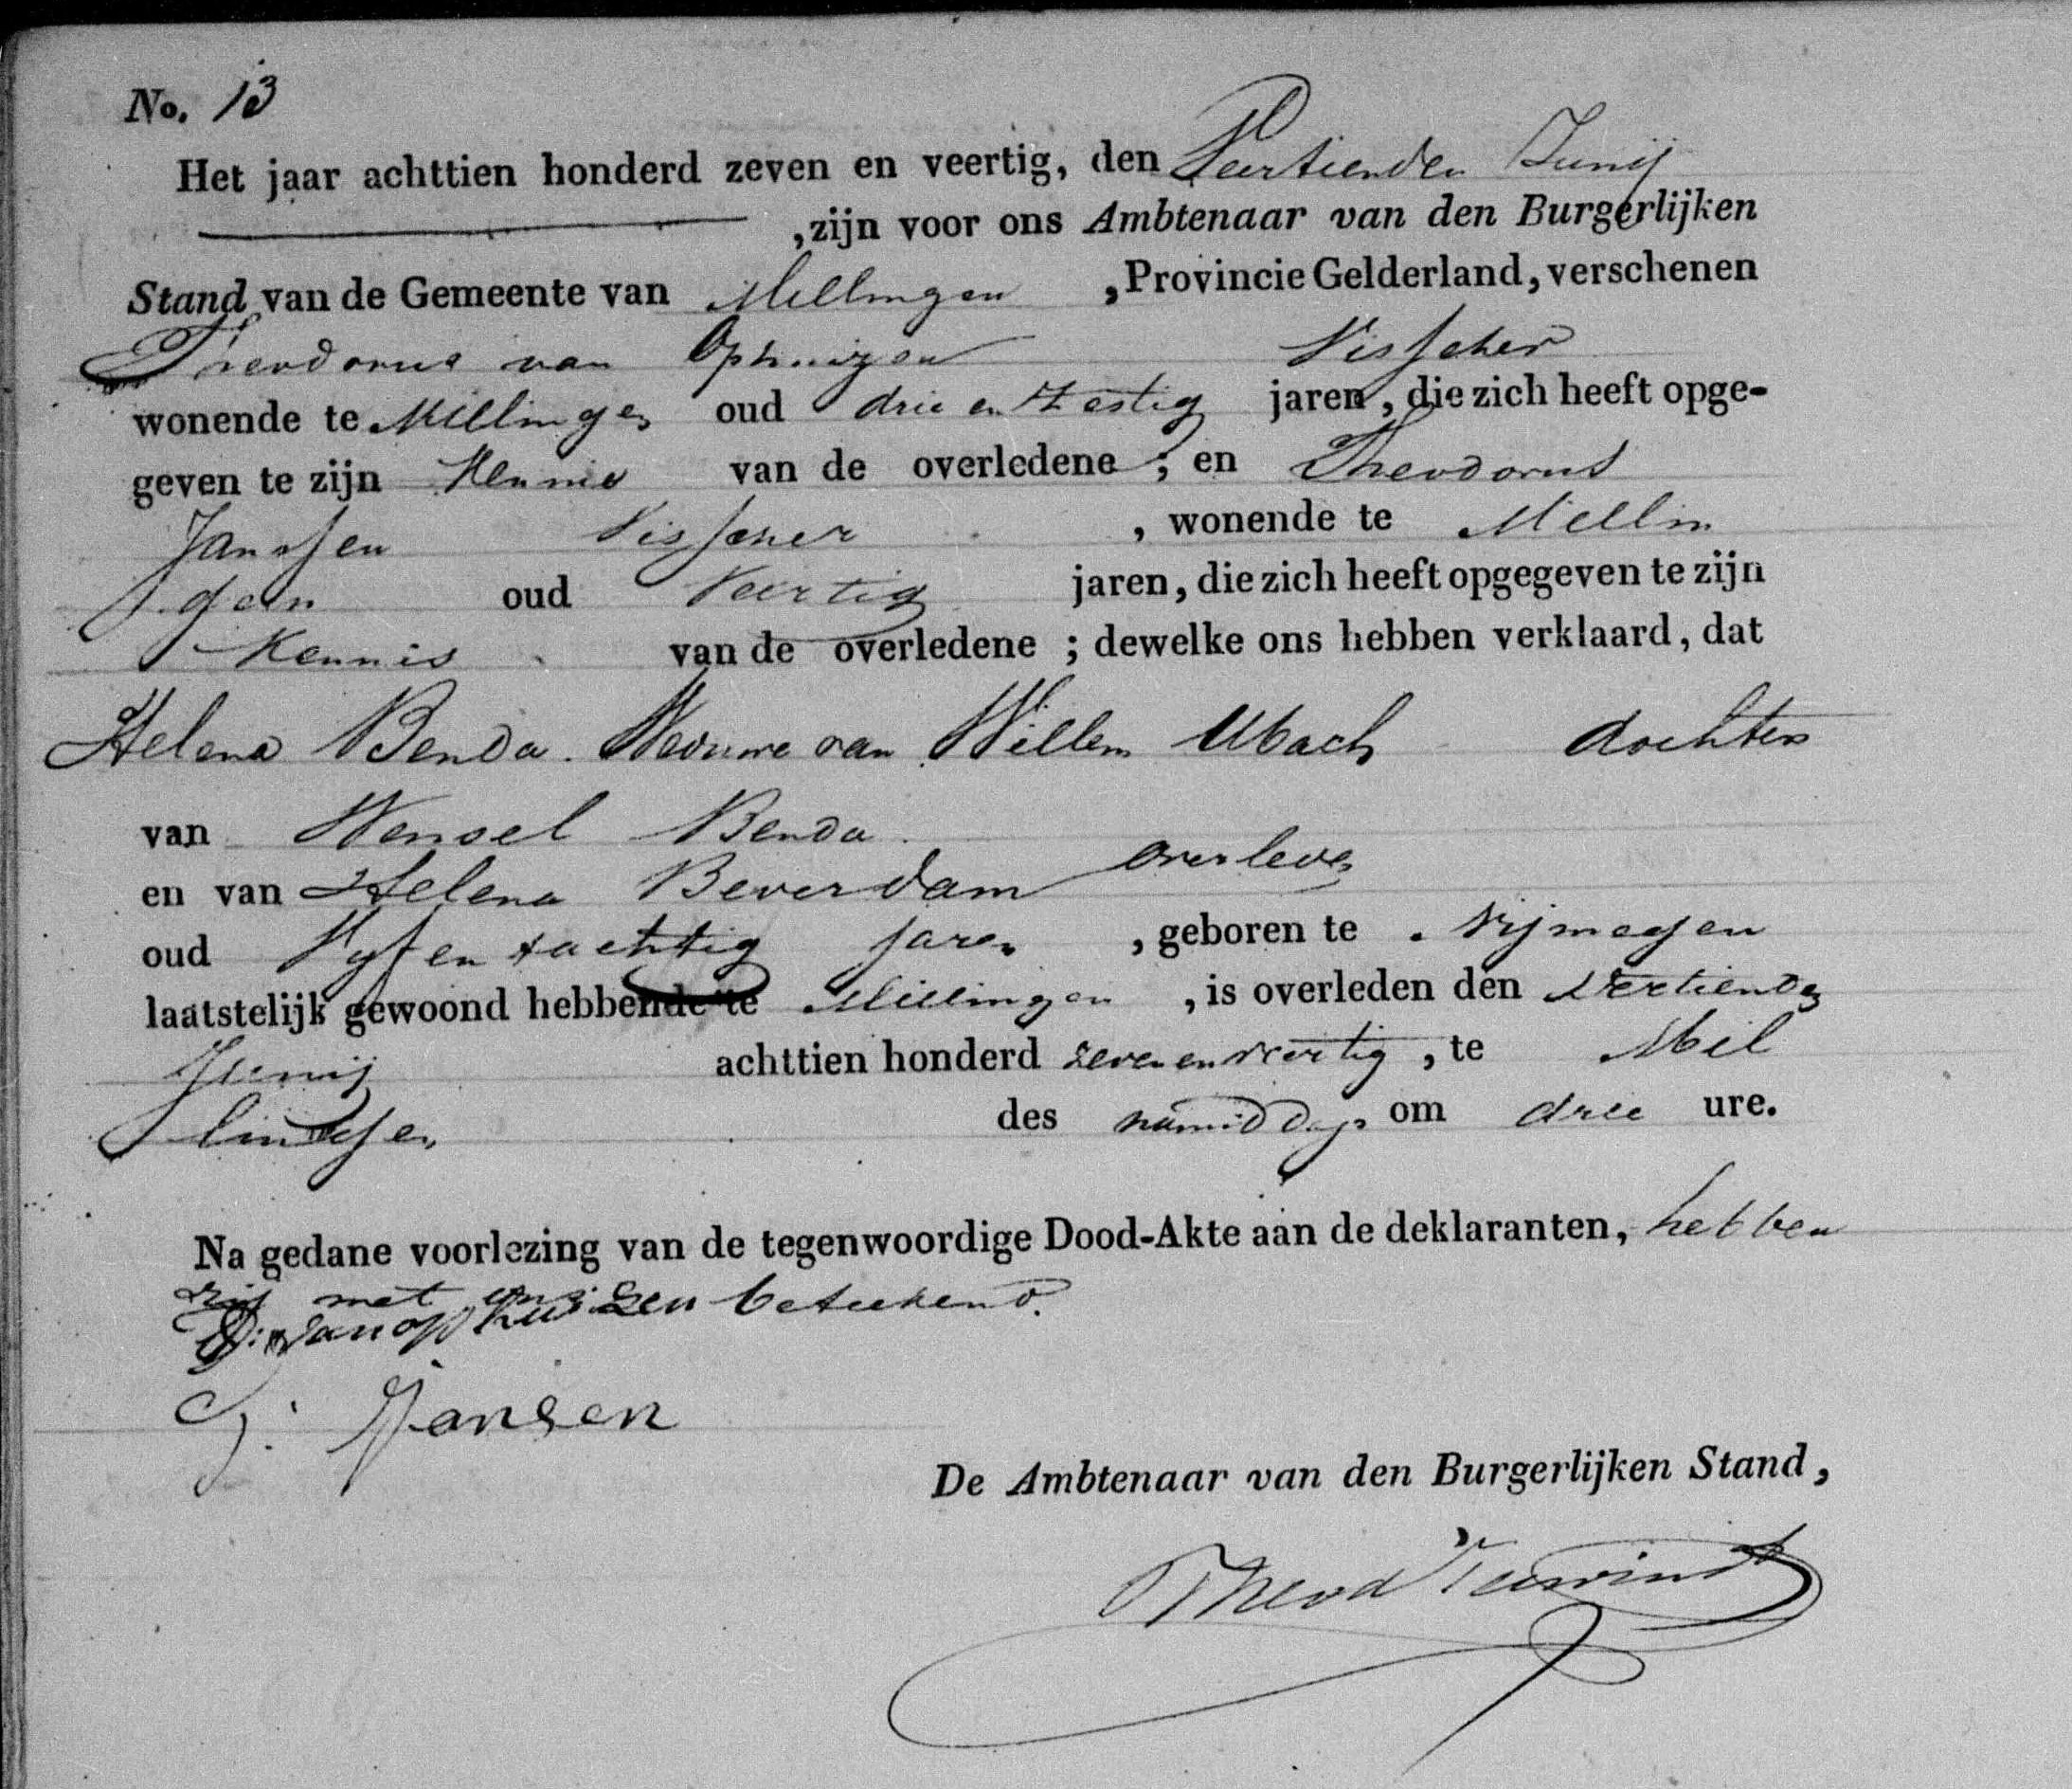 No. 13
Het jaar achttien honderd zeven en veertig, den Veertienden Junij
, zijn voor ons Ambtenaar van den Burgerlijken
Stand van de Gemeente van Millingen , Provincie Gelderland, verschenen
Theodorus van Ophuizen Visscher
wonende te Millingen oud drie en zestig jaren, die zich heeft opge-
geven te zijn Kennis van de overledene ; en Theodorus
Janssen Visscher , wonende te Millin
gen oud Veertig jaren, die zich heeft opgegeven te zijn
Kennis van de overledene ; dewelke ons hebben verklaard, dat
Helena Benda. Weduwe van Willem Ubach dochter
van Wensel Benda
en van Helena Beverdam overleden
oud Vyf en tachtig Jaren , geboren te Nijmegen
laatstelijk gewoond hebbende te Millingen , is overleden den
Junij achttien honderd zeven en veertig , te Mil
lingen des namiddags om drie ure.
Na gedane voorlezing van de tegenwoordige Dood-Akte aan de deklaranten, hebben
zij met ons beteekend.
van ophuizen
Jansen
De Ambtenaar van den Burgerlijken Stand,
Theod Terwindt